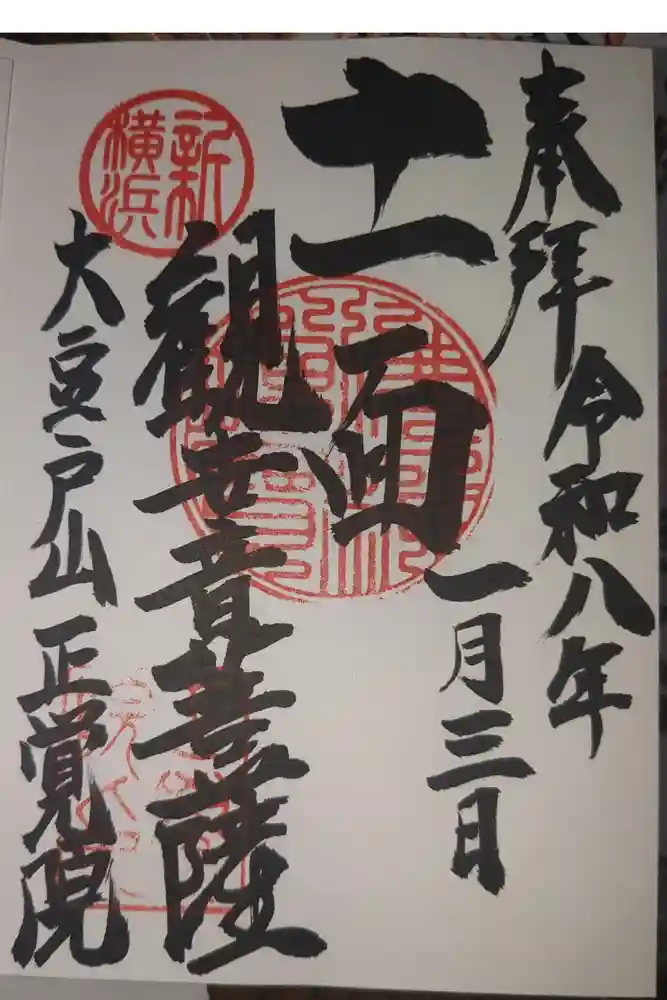 奉拝
令和八年
一月三日
十一面
観世音菩薩
新横浜
大豆戸山
正覚院